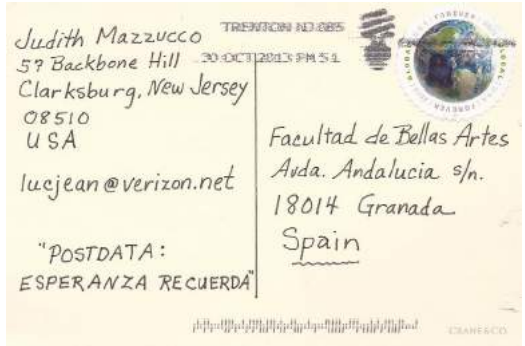 Judith Mazzucco
57 Backbone Hill
Clarksburg, New Jersey
08510
USA
lucjean@verizon.net
"POSTDATA:
ESPERANZA RECUERDA"
TRENTON NJ 085
30 OCT 2013 PM 5 L
FOREVER
GLOBAL
FOREVER
GLOBAL
Facultad de Bellas Artes
Avda. Andalucia s/n.
18014 Granada
Spain
CRANE&CO